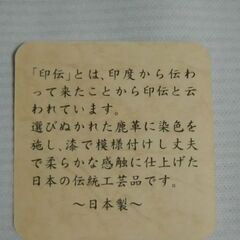 「印伝」とは、印度から伝わ
って来たことから印伝と云
われています。
選びぬかれた鹿革に染色を
施し、漆で模様付けし丈夫
で柔らかな感触に仕上げた
日本の伝統工芸品です。
～日本製～